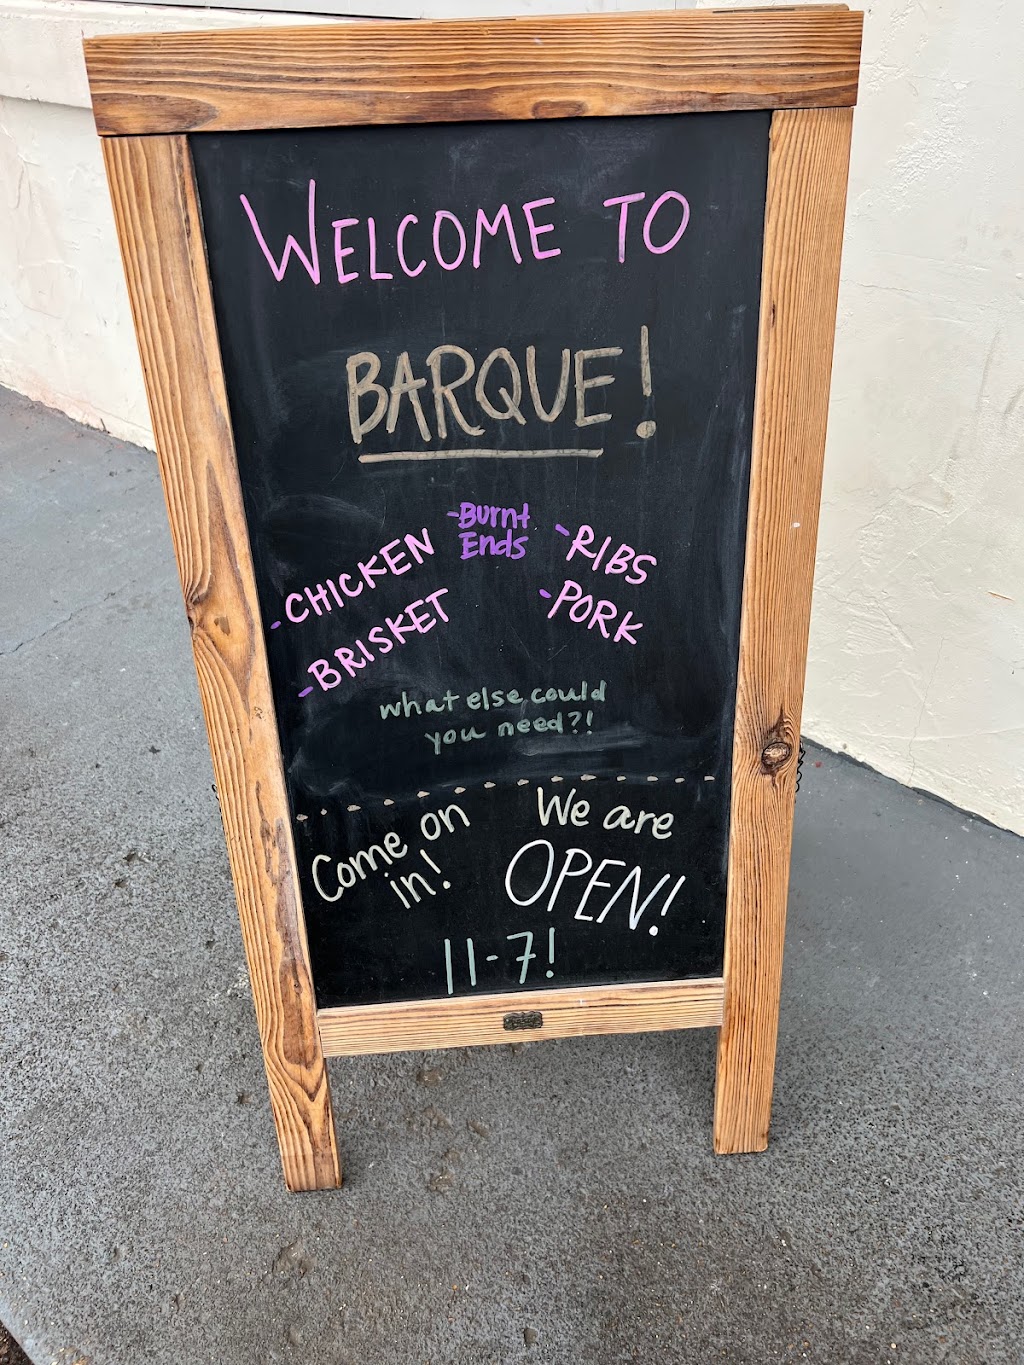 WELCOME TO
BARQUE!
-Burnt
Ends
-CHICKEN
-BRISKET
-RIBS
-PORK
what else could
you need?!
Come on
in!
We are
OPEN!
11-7!